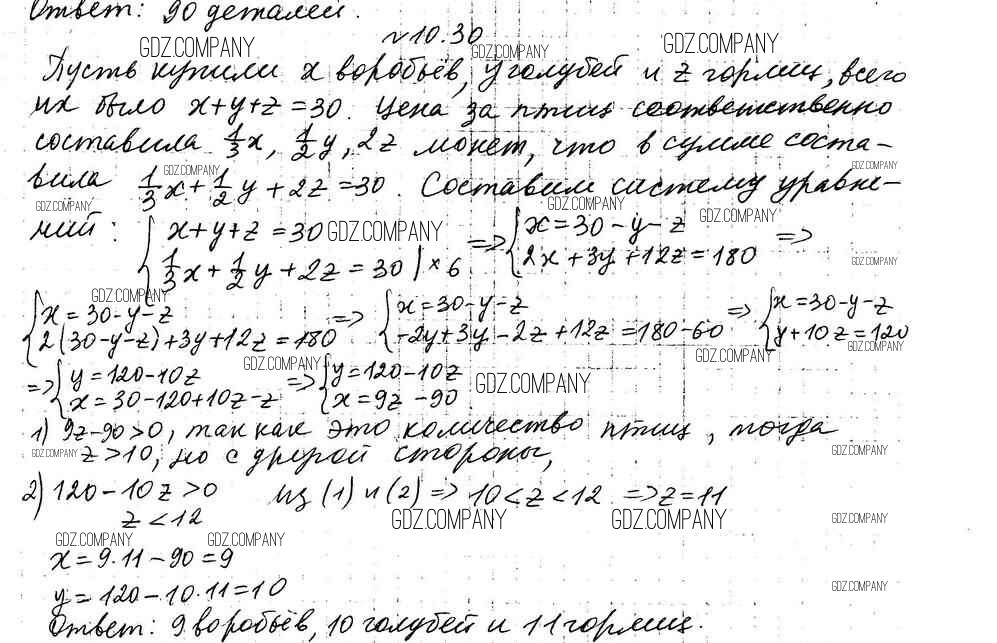 Ответ: 90 деталей.
N 10.30
GDZ.COMPANY GDZ.COMPANY GDZ.COMPANY
Пусть купили x воробьёв, y голубей и z горлиц, всего
их было x+y+z=30. Цена за птиц соответственно
составила 1/3x, 1/2y, 2z монет, что в сумме соста-
GDZ.COMPANY GDZ.COMPANY
вила 1/3x+1/2y+2z=30. Составим систему уравне-
GDZ.COMPANY GDZ.COMPANY GDZ.COMPANY
ний: { x+y+z=30 GDZ.COMPANY => { x=30-y-z =>
1/3x+1/2y+2z=30 | ×6 2x+3y+12z=180 GDZ.COMPANY
GDZ.COMPANY
{ x=30-y-z => { x=30-y-z => { x=30-y-z
2(30-y-z)+3y+12z=180 -2y+3y-2z+12z=180-60 y+10z=120
GDZ.COMPANY GDZ.COMPANY GDZ.COMPANY
=> { y=120-10z => { y=120-10z GDZ.COMPANY
x=30-120+10z-z x=9z-90
1) 9z-90>0, так как это количество птиц, тогда
GDZ.COMPANY z>10, но с другой стороны, GDZ.COMPANY
2) 120-10z>0 из (1) и (2) => 10<z<12 => z=11
z<12 GDZ.COMPANY GDZ.COMPANY GDZ.COMPANY
GDZ.COMPANY GDZ.COMPANY
x=9·11-90=9
y=120-10·11=10 GDZ.COMPANY
Ответ: 9 воробьёв, 10 голубей и 11 горлиц.